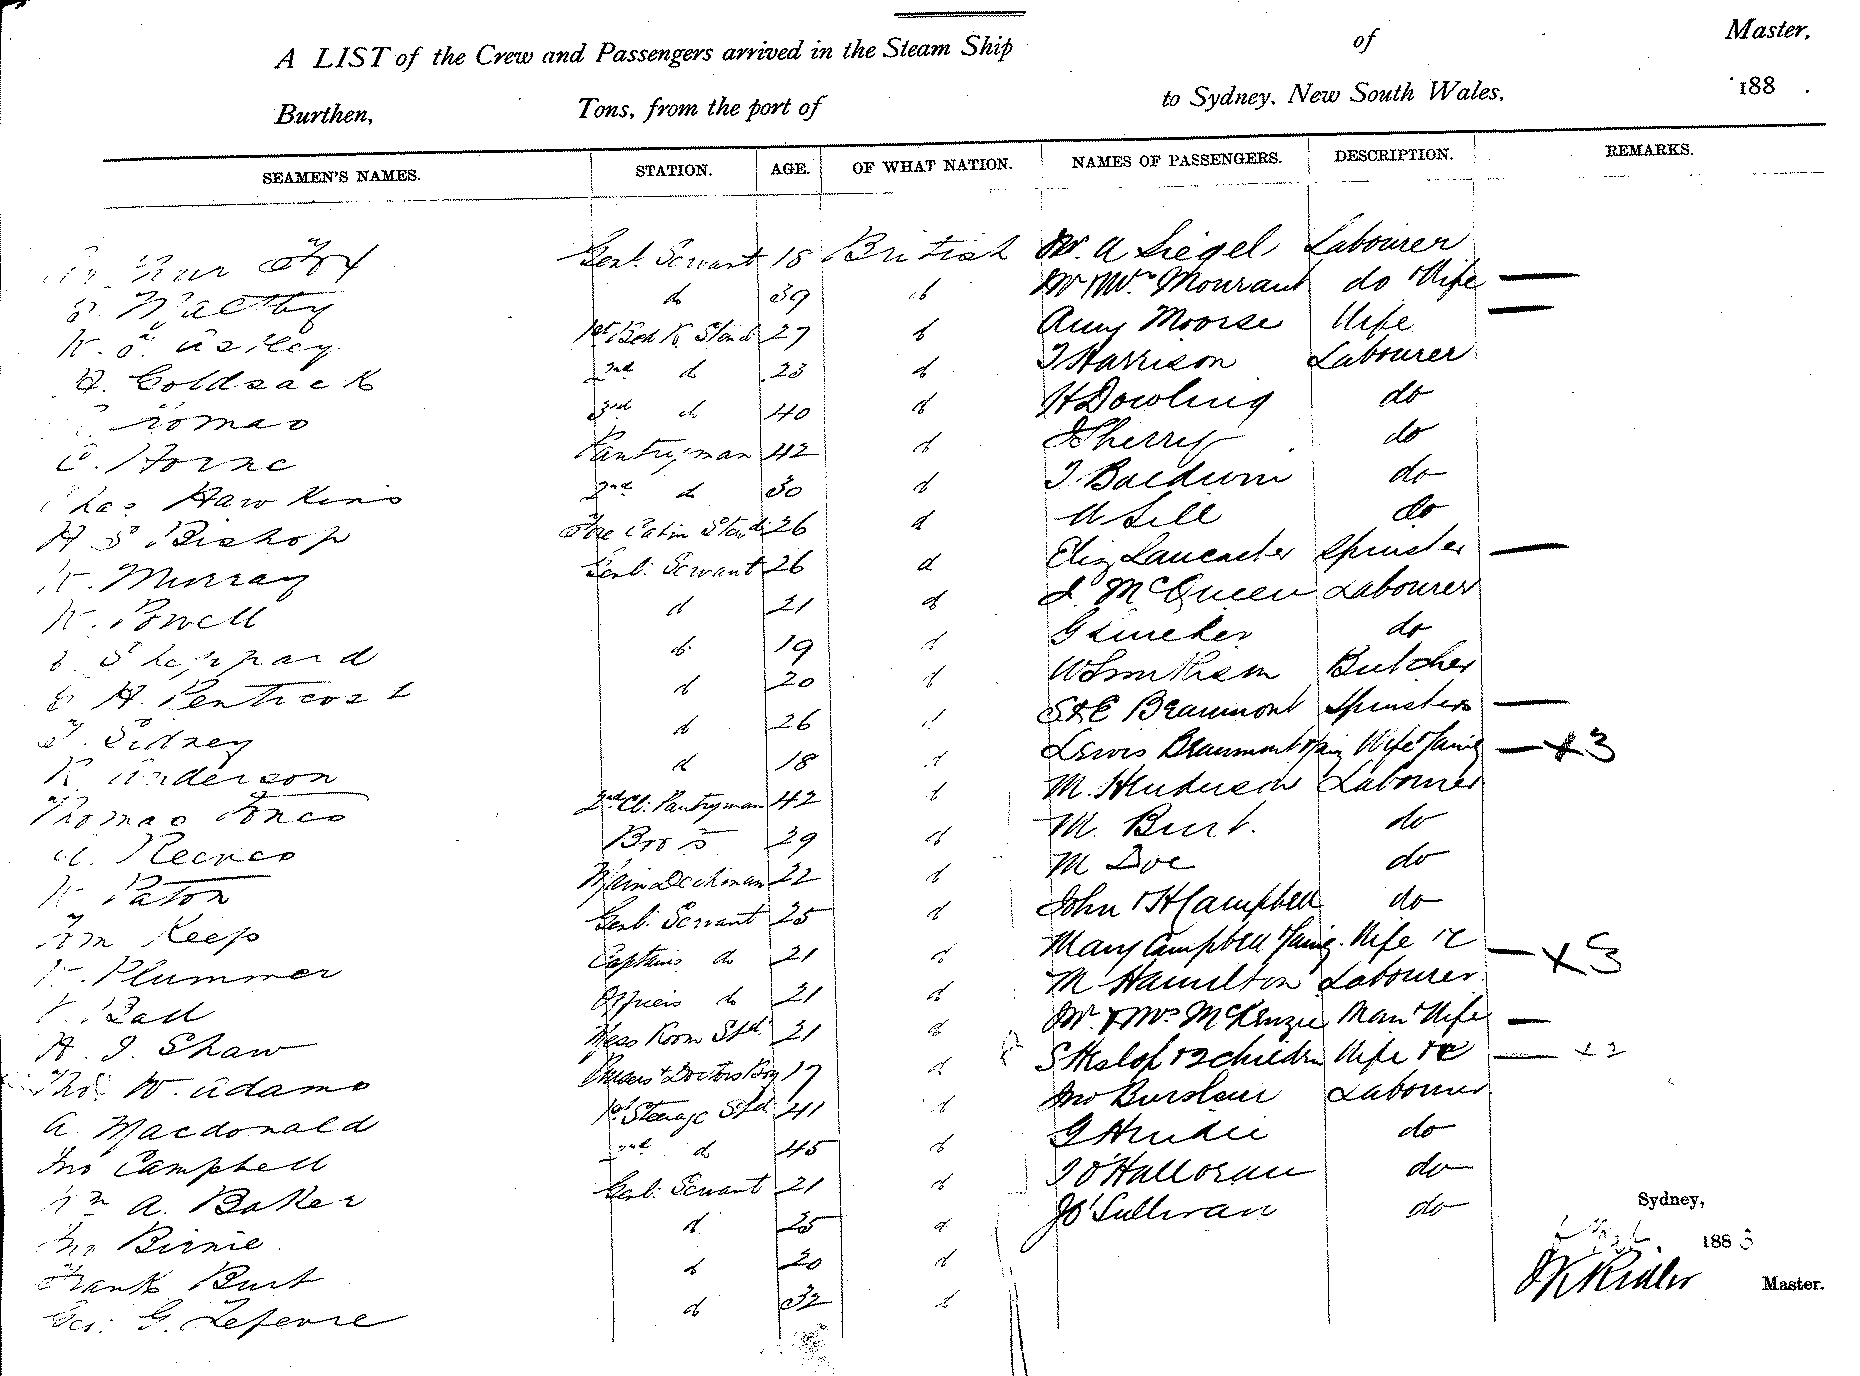 A LIST of the Crew and Passengers arrived in the Steam Ship of Master,
Burthen, Tons, from the port of to Sydney, New South Wales, 188 .
SEAMEN'S NAMES. STATION. AGE. OF WHAT NATION. NAMES OF PASSENGERS. DESCRIPTION. REMARKS.
Fox Genl. Servant 18 British Mr. A Siegel Labourer
Maltby do 39 do Mr & Mrs. Mourant do & Wife —
W. Astley 1st Bed R. Stewd 27 do Amy Moorse Wife —
A. Goldsack 2nd do 23 do T Harrison Labourer
3rd do 40 do H Dowling do
C. Horne Pantryman 42 do J Sherry do
Chas Hawkins 2nd do 30 do T. Baldwin do
H S Bishop Fore Cabin Stewd: 26 do A Lill do
W. Murray Genl: Servant 26 do Eliz Lancaster Spinster —
W. Powell do 21 do J. McQueen Labourer
Sheppard do 19 do G do
H. Penticost do 20 do W Smithson Butcher
T. Sidney do 26 do S & E Beaumont Spinsters —
R Anderson do 18 do Lewis Beaumont & famy Wife & famy — x3
Thomas Jones 2nd Cl: Pantryman 42 do M. Henderson Labourer
Reeves 29 do M. Burt. do
W Paton Main Deckman 22 do M Doe do
Wm Keep Genl: Servant 25 do John & H Campbell do
W. Plummer Captains do 21 do Mary Campbell & famy. Wife &c — x3
Ball Officers do 21 do M Hamilton Labourer
H. J. Shaw Mess Room Std. 21 do Mr. & Mrs McKenzie Man & Wife —
Thos W. Adams Pursers & Doctors Boy 17 do S Heslop & 2 children Wife &c — x2
A. Macdonald 1st Steerage Std: 41 do Jno Labourer
Jno Campbell 2nd do 45 do G Hendie do
Wm A. Baker Genl: Servant 21 do J O'Halloran do
Jno Birnie do 25 do J O'Sullivan do
Frank Burt do 20 do
Geo: G. Lefevre do 32 do
Sydney,
1883
Master.